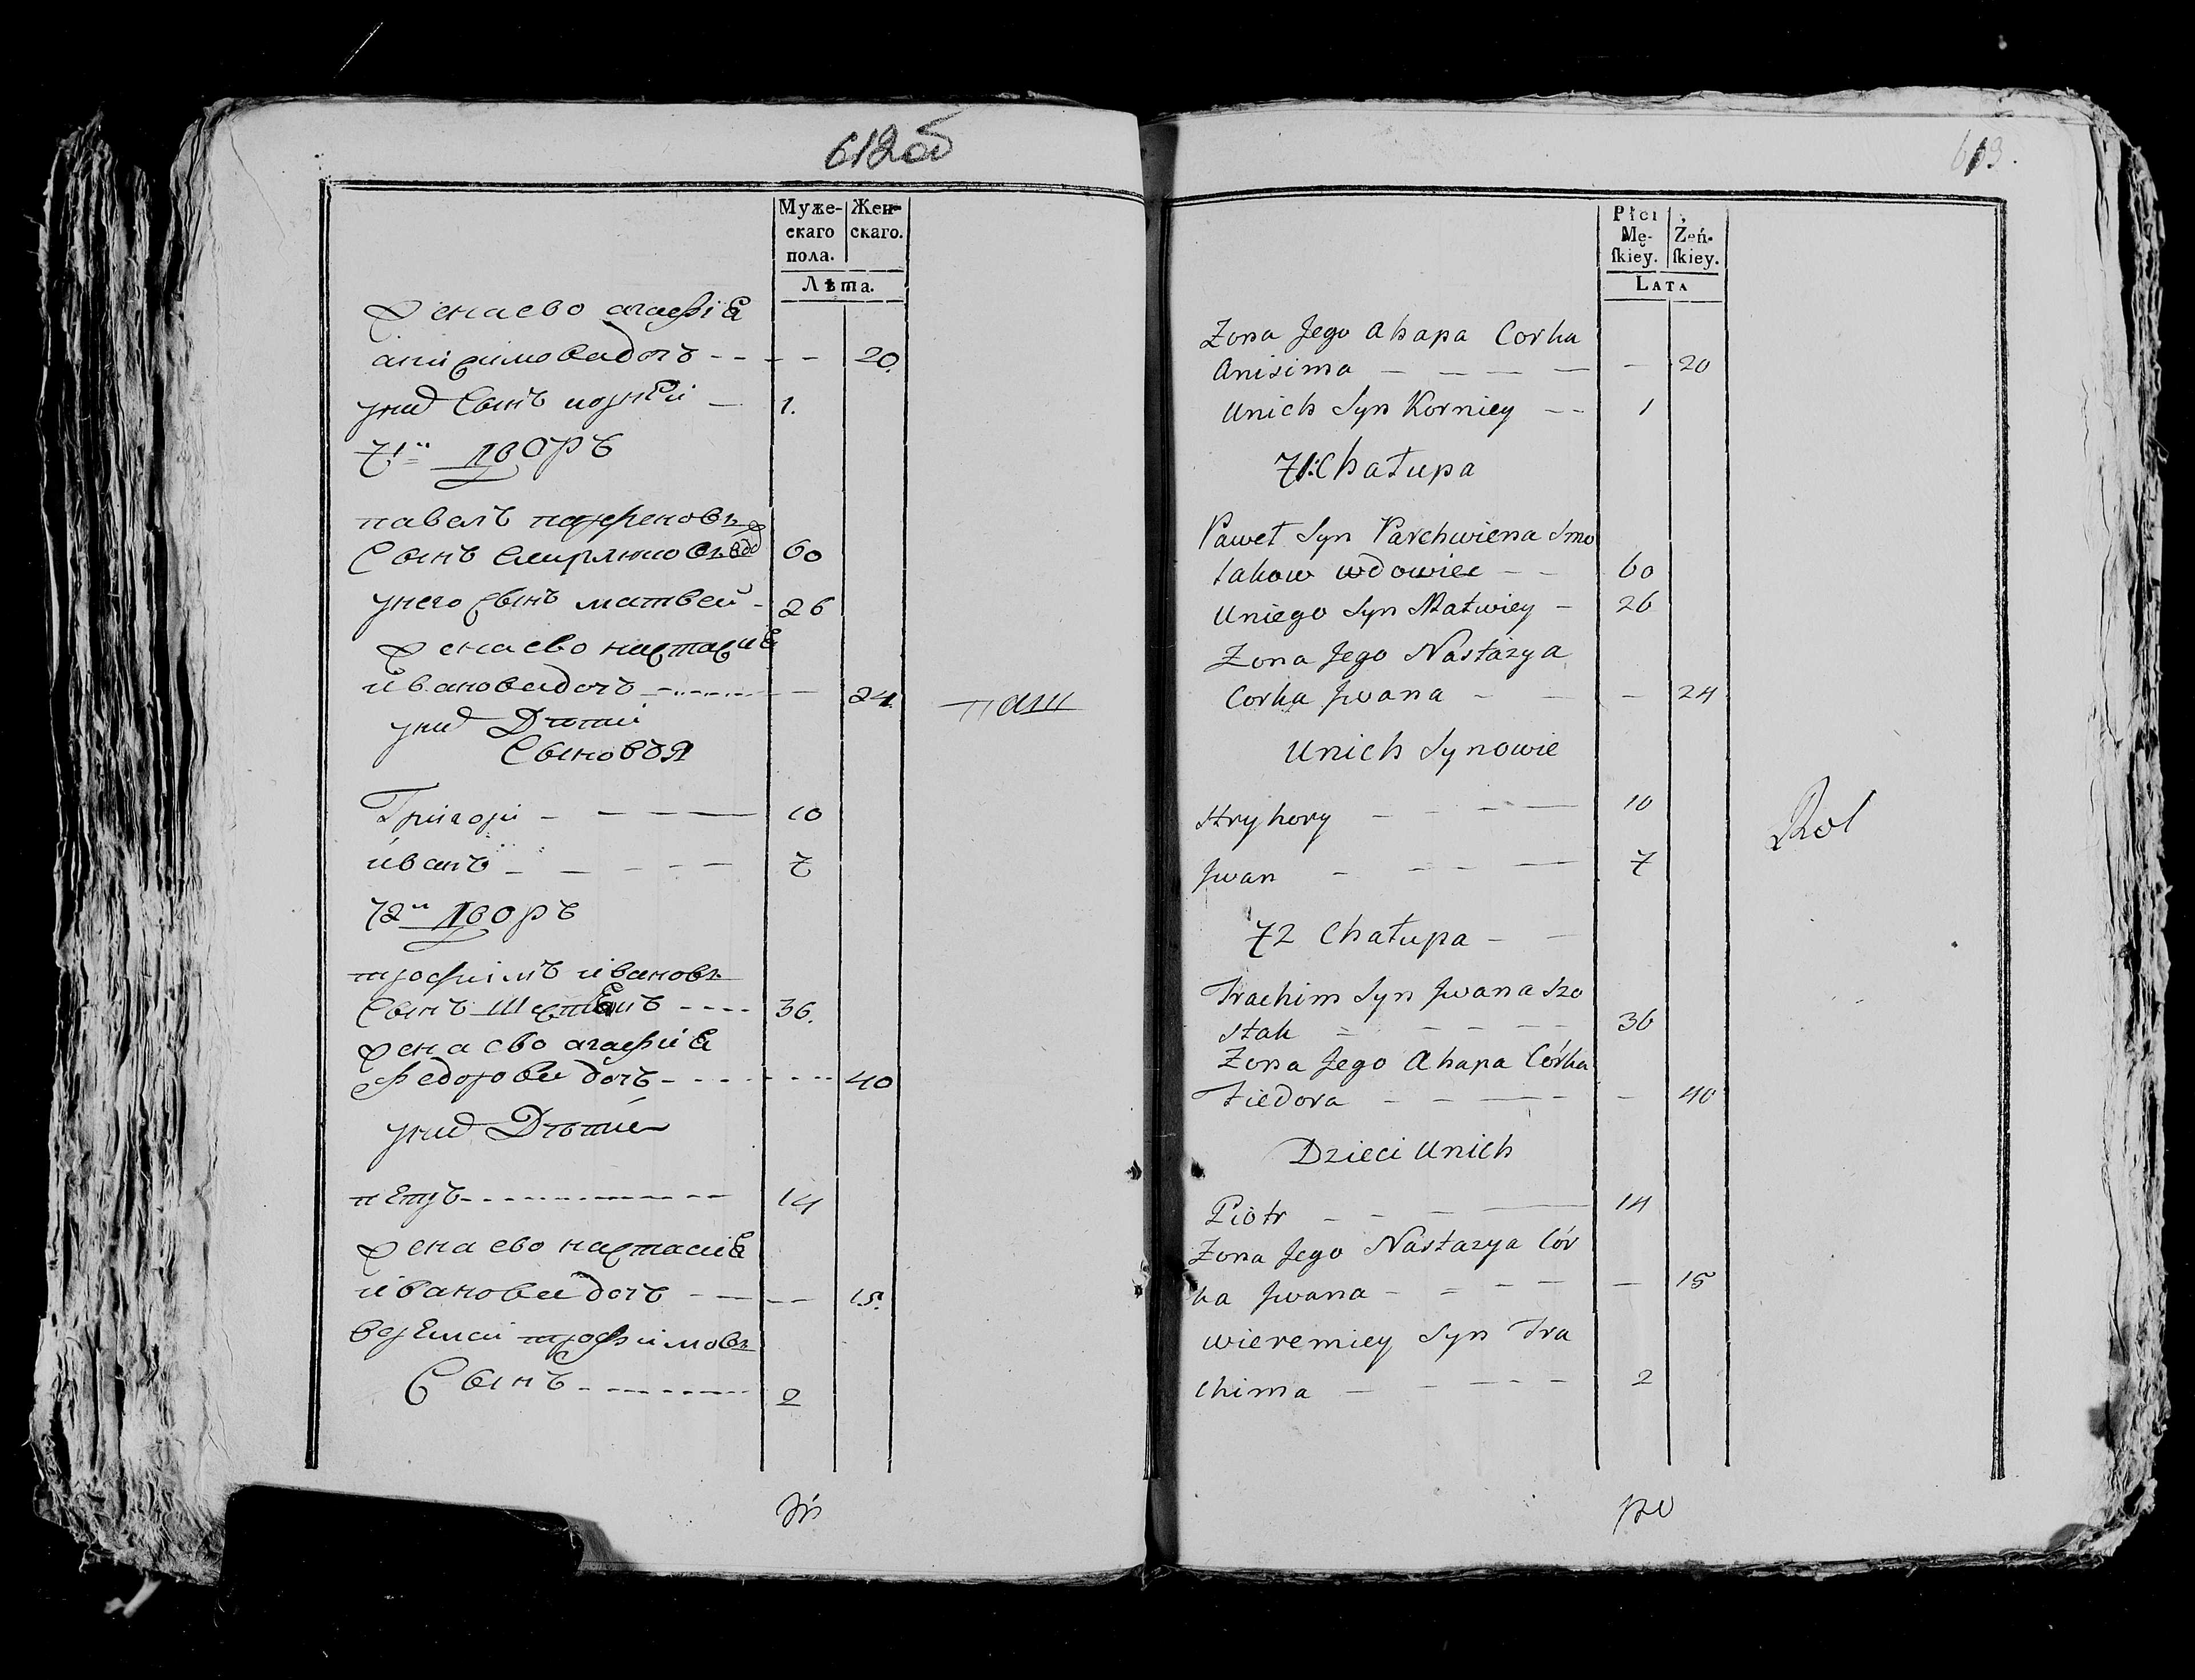 612об
Муже- Жен-
скаго скаго.
пола.
Лѣта.
жена ево агафiа
анисимова дочъ - - - - 20.
у них сынъ корнѣи — 1.
71й дворъ
павелъ парфеновъ
сынъ смирлюковъ вдо 60
у него сынъ матвей - 26
жена ево настасиа
ивановна дочъ 24
паш
у них дѣти
сыновья
Григори - - - — 10
иванъ - - - - - 7
72й дворъ
трофимъ ивановъ
сынъ - - - - 36.
жена ево агафиа
федорова дочъ - - - - 40
у них дѣти
пётръ - - - - 14
жена ево настасиа
иванова дочъ - - - - 15.
верёмѣи трофимовъ
сынъ - - - - 2
613.
Płci
Mę- Żeń-
ſkiey. ſkiey.
LATA
Zona Jego Ahapa Corka
Anisima — — — — — 20
Unich Syn Korniey - - 1
71: Chałupa
Paweł Syn Parchwiena Smo
lakow wdowiec - - 60
Uniego Syn Matwiey - 26
Zona Jego Nastazya
Corka Jwana - - - 24
Unich Synowie
Hryhory - - - — 10
Jwan - - - — 7
Rol
72 Chałupa - -
Trachim Syn Jwana Szo
stak - - - - - 36
Zona Jego Ahapa Córka
Fiedora - - — - - 40
Dzieci Unich
Piotr - - - — 14
Zona Jego Nastazya Cór
ka Jwana - - - - — 15
Wieremiey Syn Tra
chima — - - - - 2